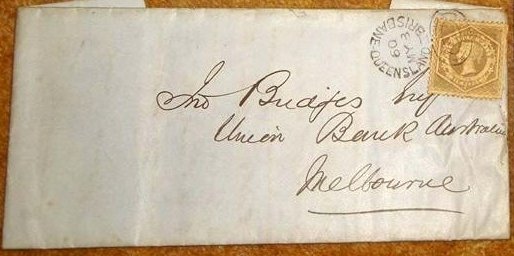 Jno Bridges Esq
Union Bank Australia
Melbourne
BRISBANE·QUEENSLAND
MY 3
60